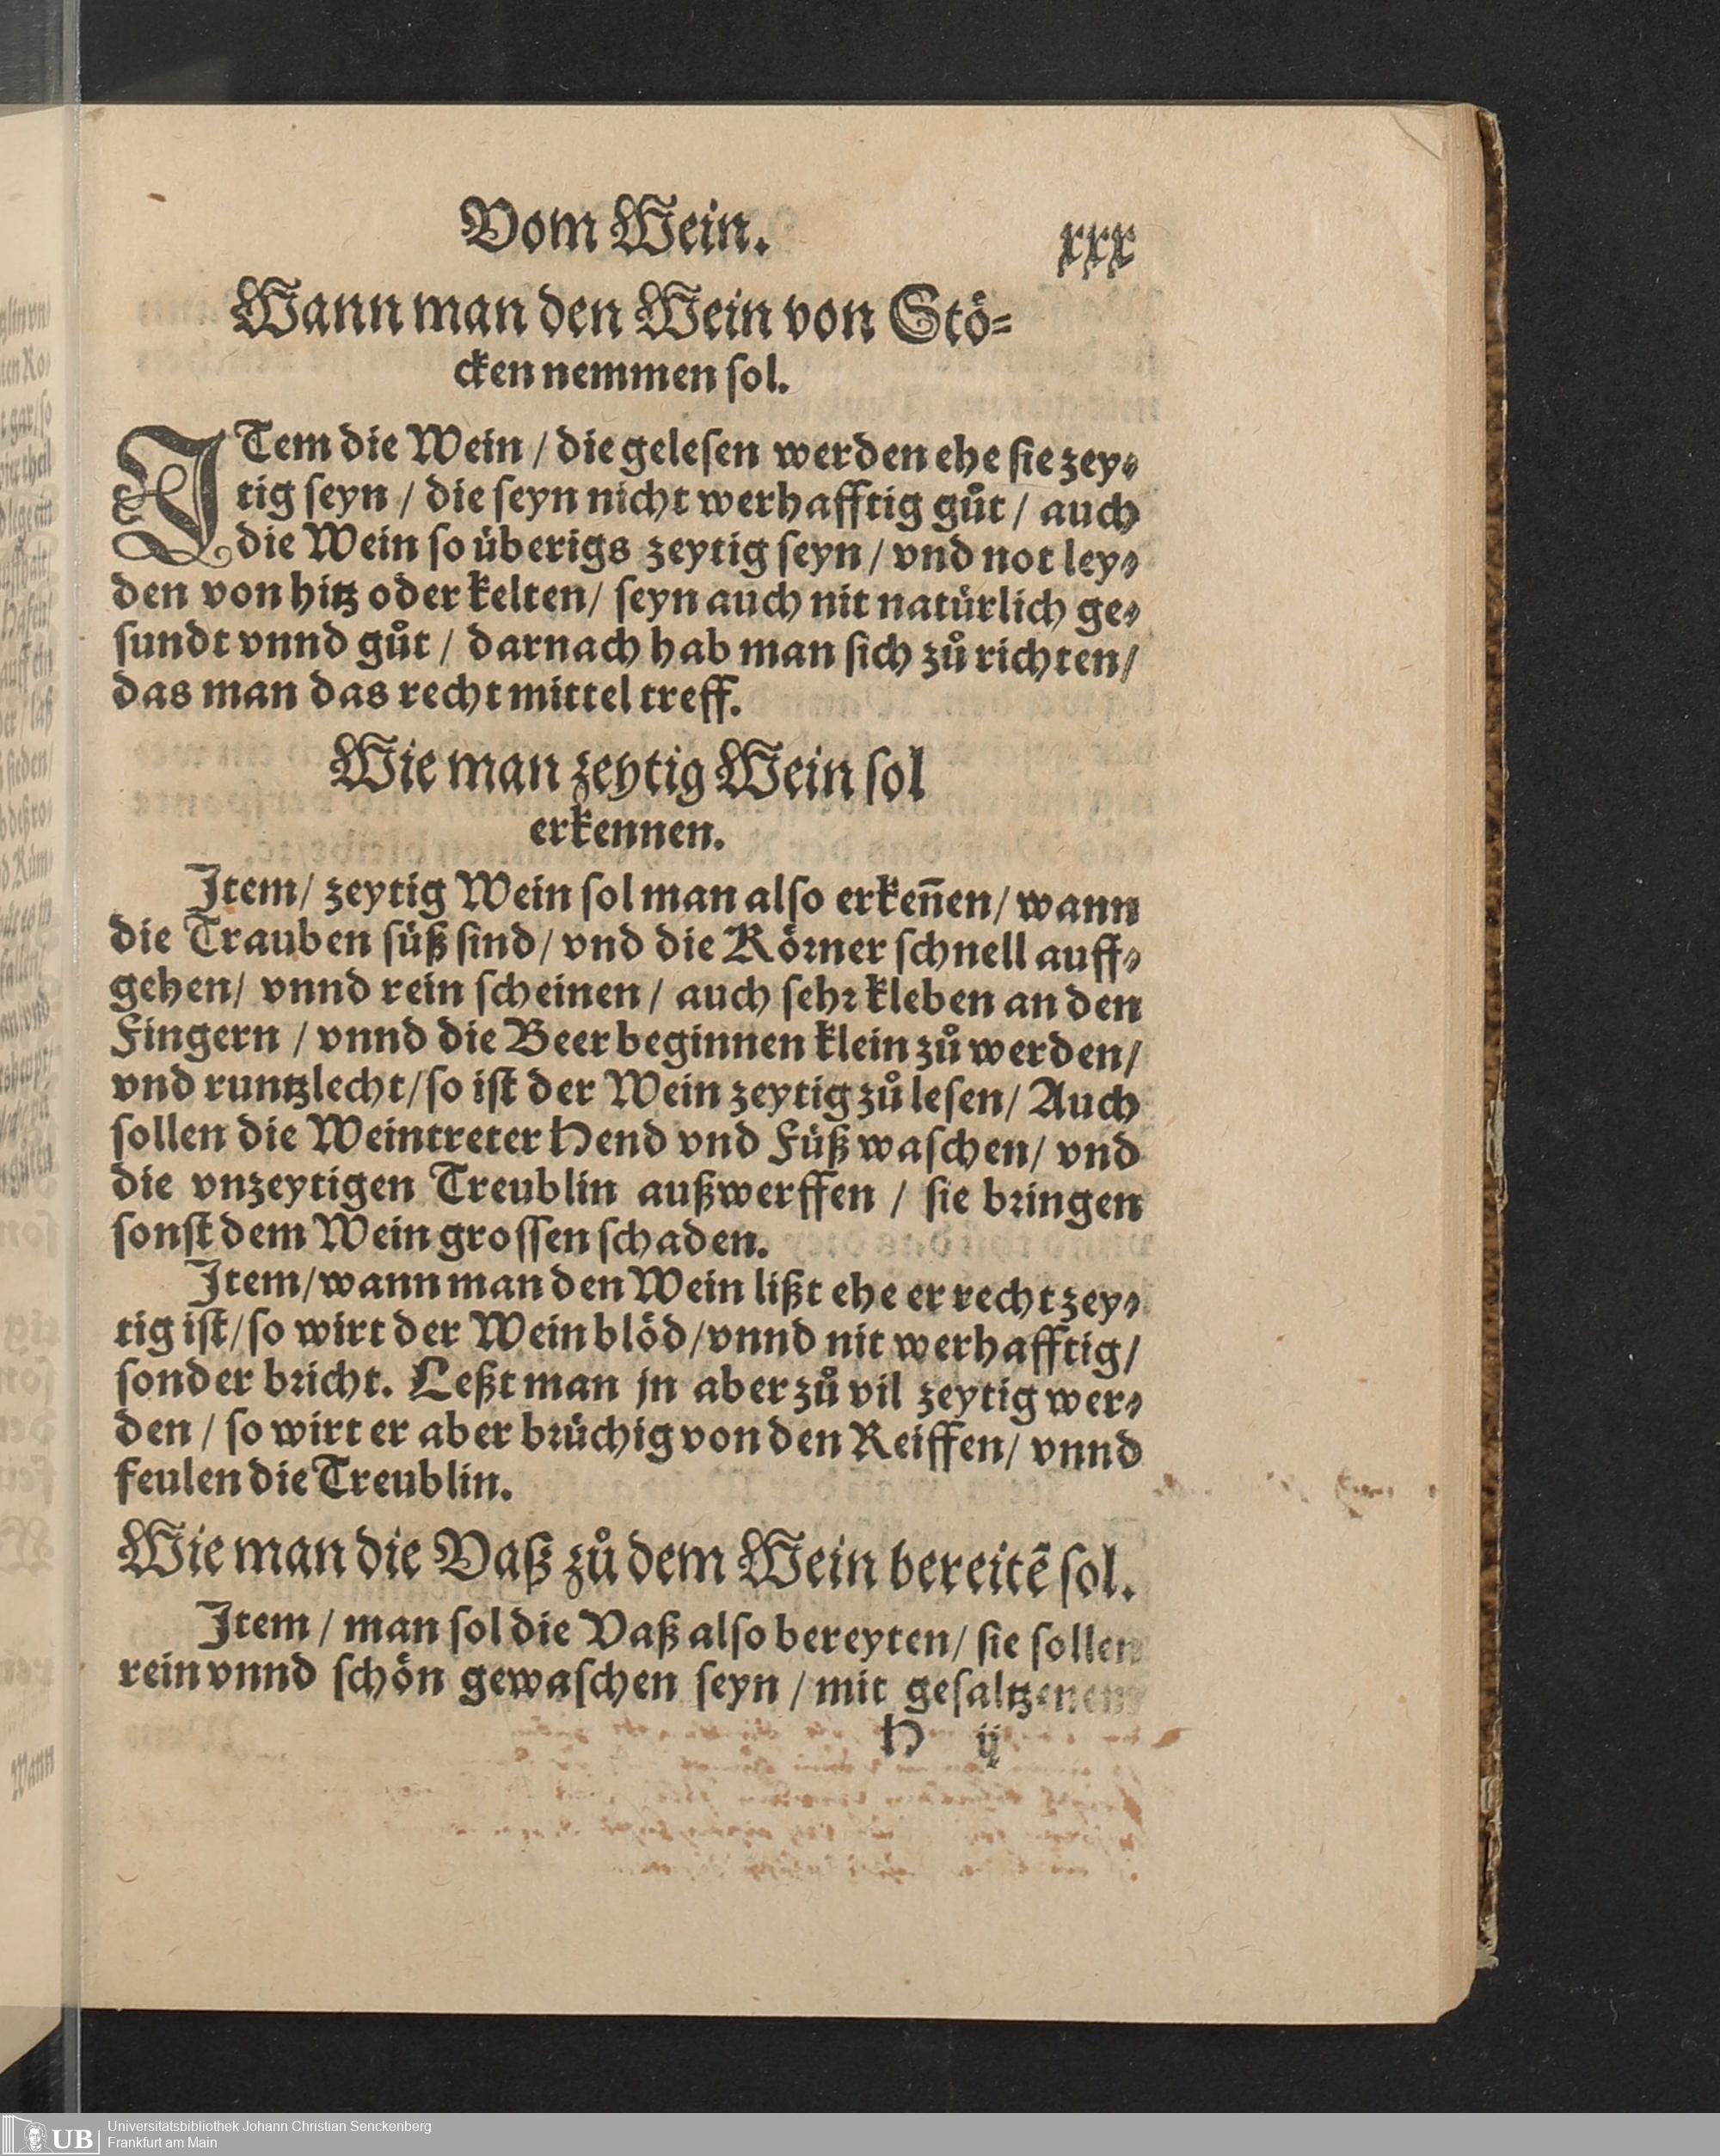 Vom Wein. xxx
Wann man den Wein von Stö⸗
cken nemmen ſol.
ITem die Wein / die geleſen werden ehe ſie zey⸗
tig ſeyn / die ſeyn nicht werhafftig gůt / auch
die Wein ſo überigs zeytig ſeyn / vnd not ley⸗
den von hitz oder kelten / ſeyn auch nit natürlich ge⸗
ſundt vnnd gůt / darnach hab man ſich zů richten /
das man das recht mittel treff.
Wie man zeytig Wein ſol
erkennen.
Item / zeytig Wein ſol man alſo erkeñen / wann
die Trauben ſüß ſind / vnd die Körner ſchnell auff⸗
gehen / vnnd rein ſcheinen / auch ſehr kleben an den
Fingern / vnnd die Beer beginnen klein zů werden /
vnd runtzlecht / ſo iſt der Wein zeytig zů leſen / Auch
ſollen die Weintreter Hend vnd Füß waſchen / vnd
die vnzeytigen Treublin außwerffen / ſie bringen
ſonſt dem Wein groſſen ſchaden.
Item / wann man den Wein lißt ehe er recht zey⸗
tig iſt / ſo wirt der Wein blöd / vnnd nit werhafftig /
ſonder bricht. Leßt man jn aber zů vil zeytig wer⸗
den / ſo wirt er aber brüchig von den Reiffen / vnnd
feulen die Treublin.
Wie man die Vaß zů dem Wein bereitẽ ſol.
Item / man ſol die Vaß alſo bereyten / ſie ſollen
rein vnnd ſchön gewaſchen ſeyn / mit geſaltzenem
H ij
UB
Universitätsbibliothek Johann Christian Senckenberg
Frankfurt am Main